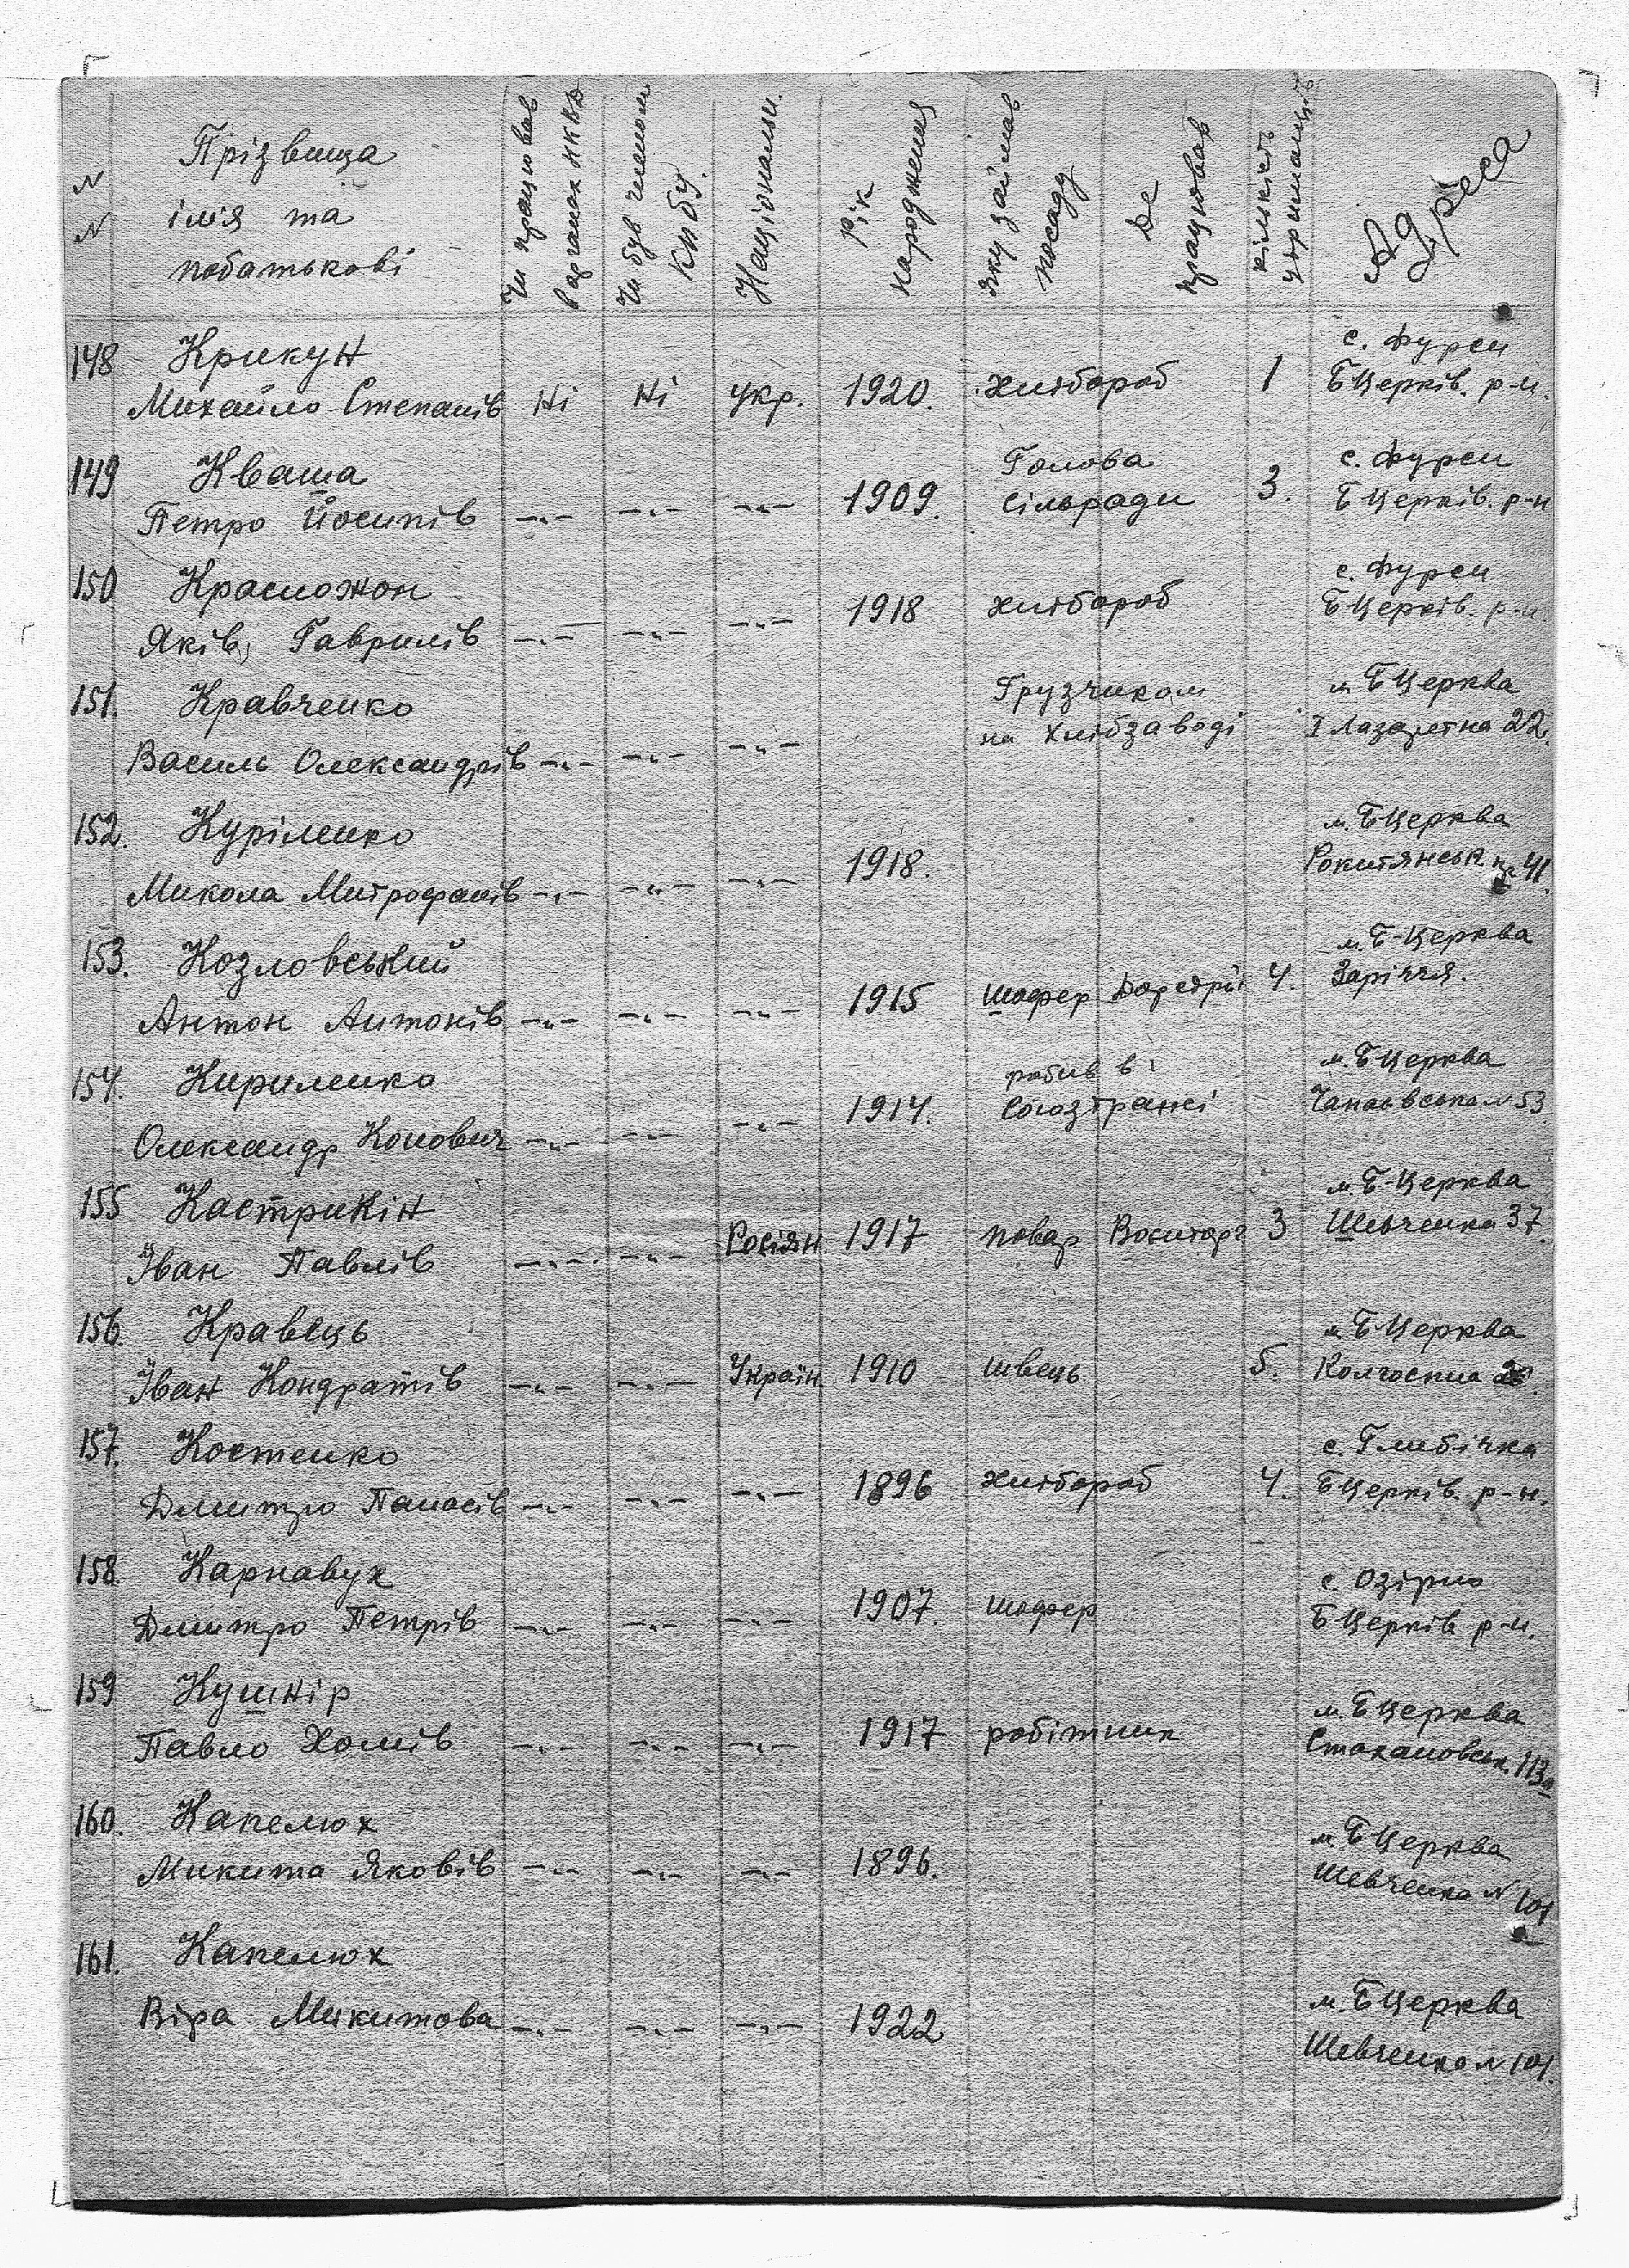 N N
Прізвища
імя та
побатькові
Чи працював
в органах НКВД
Чи був членом
КП(б)У.
Національн.
Рік
народження
Яку займав
посаду
Де
працював
кількість
утриманців
Адреса
148 Крикун с. Фурси
Михайло Степанів Ні Ні укр. 1920. хлібороб 1 БЦерків. р-н.
149 Кваша Голова с. Фурси
Петро Йосипів —„— —„— —„— 1909. сільради 3. БЦерків. р-н
150 Красножон с. Фурси
Яків, Гаврилів —„— —„— —„— 1918 хлібороб БЦерків. р-н.
151. Кравченко Грузчиком м БЦерква
на хлібзаводі І Лазаретна 22.
Василь Олександрів —„— —„— —„—
152. Куріленко м. БЦерква
Микола Митрофанів —„— —„— —„— 1918. Рокитянськ. 41.
153. Козловський м. Б-Церква
Антон Антонів —„— —„— —„— 1915 шофер 4. Заріччя.
154. Кириленко робив в м. БЦерква
1914. Союзтрансі N 53
Олександр —„— —„— —„—
155 Кастрикін м. Б-Церква
Іван Павлів —„— —„— Росіян. 1917 повар Воєнторг 3 Шевченка 37.
156. Кравець м БЦерква
Іван Кондратів —„— —„— Україн. 1910 швець 5. Колгоспна
157. Костенко с. Глибічка
Дмитро Панасів —„— —„— —„— 1896 хлібороб 4. БЦерків. р-н.
158. Карнавух с. Озірно
Дмитро Петрів —„— —„— —„— 1907. шофер БЦерків р-н.
159 Кушнір м. БЦерква
Павло Хомів —„— —„— —„— 1917 робітник Стахановськ. 113а
160. Капелюх м. БЦерква
Микита Яковів —„— —„— —„— 1896. Шевченка N 101
161. Капелюх
Віра Микитова —„— —„— —„— 1922 м. БЦерква
Шевченка N 101.